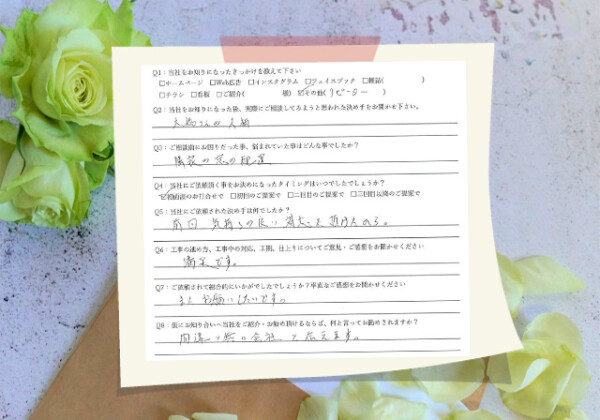 Q1：当社をお知りになったきっかけを教えて下さい
□ホームページ □Web広告 □インスタグラム □フェイスブック □雑誌( )
□チラシ □看板 □ご紹介( 様) ☑その他(リピーター )
Q2：当社をお知りになった後、実際にご相談してみようと思われた決め手をお聞かせ下さい。
さんの
Q3：ご相談前にお困りだった事、悩まれていた事はどんな事でしたか？
隣家の
Q4：当社にご依頼頂く事をお決めになったタイミングはいつでしたでしょうか？
☑相談後のお打合せで □初回のご提案で □二回目のご提案で □三回目以降のご提案で
Q5：当社にご依頼された決め手は何でしたか？
前回 気持ちの良い
Q6：工事の進め方、工事中の対応、工期、仕上りについてご意見・ご感想をお聞かせください
満足です。
Q7：ご依頼されて総合的にいかがでしたでしょうか？率直なご感想をお聞かせください
また お願いしたいです。
Q8：仮にお知り合いへ当社をご紹介・お勧め頂けるならば、何と言ってお勧めされますか？
間違い無い会社 と伝えます。